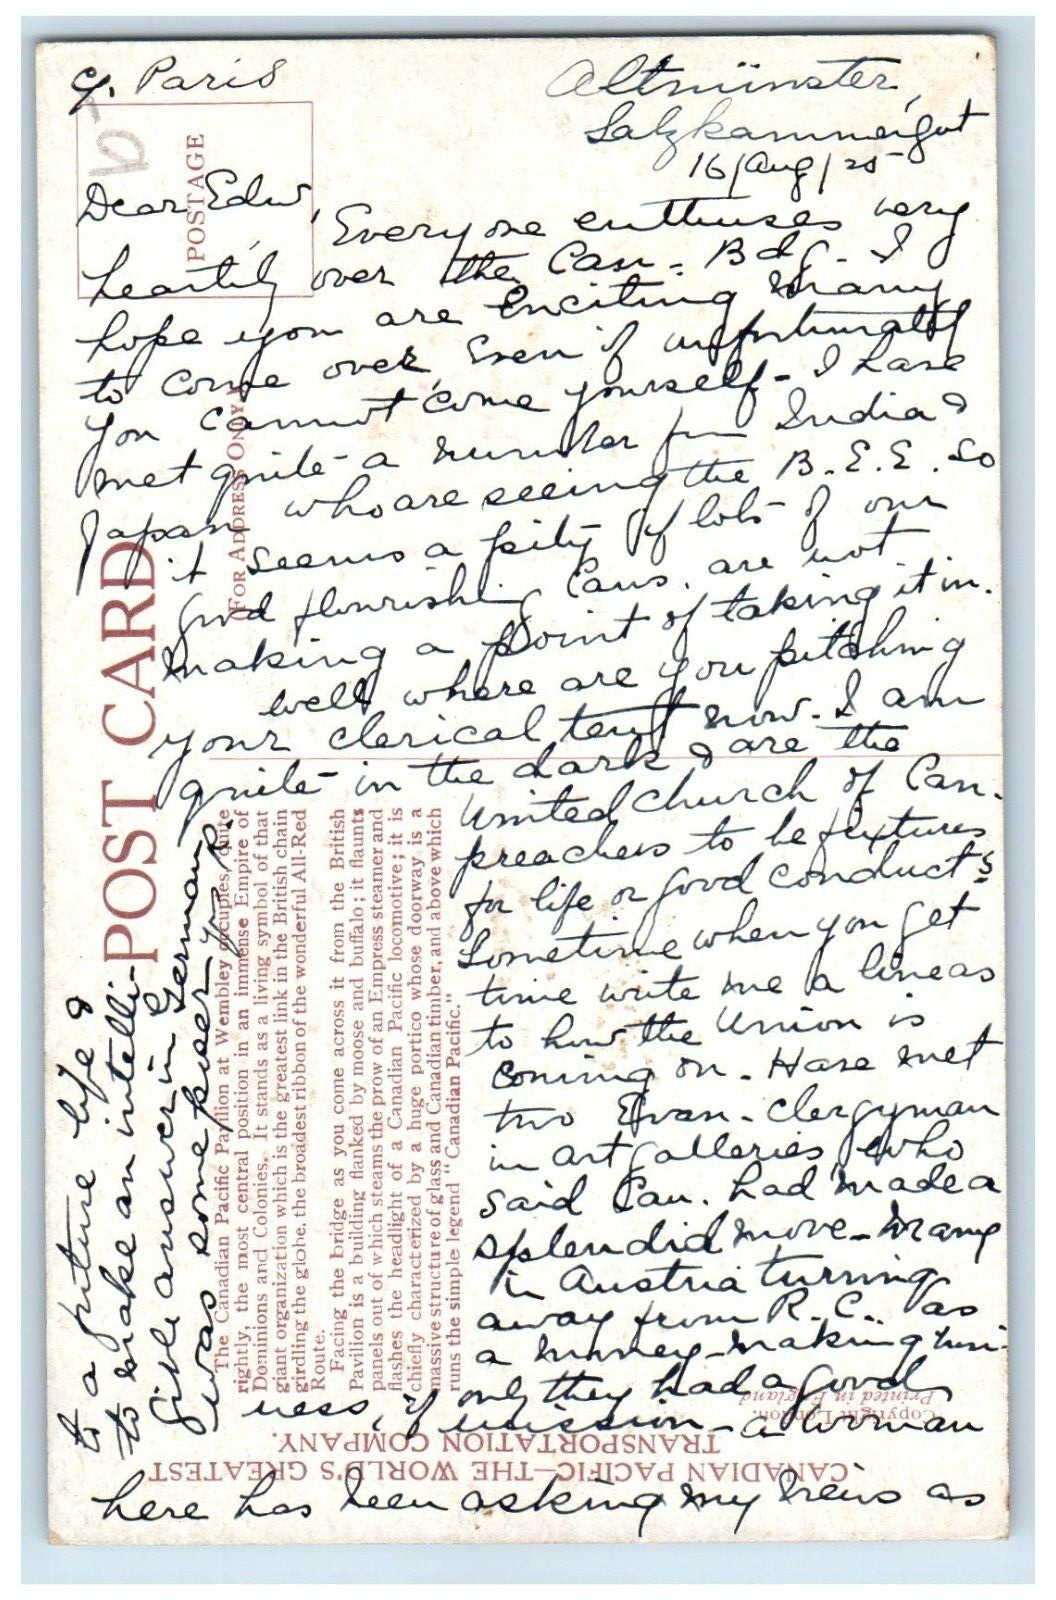 c/o Paris
Altmünster,
Salzkammergut
16/Aug/25
Dear Edw,
Everyone enthuses very
heartily over the Can. Bdg. I
hope you are enciting many
to come over, even if unfortunately
you cannot come yourself - I have
met quite a number fm India &
Japan who are seeing the B.E.E. so
it seems a pity if lots of our
good flourishing Cans. are not
making a point of taking it in.
well where are you pitching
your clerical tent now. I am
quite in the dark & are the
United Church of Can.
preachers to be fixtures
for life or good conduct?
Sometime when you get
time write me a line as
to how the Union is
coming on. Have met
two Evan. clergyman
in art galleries who
said Can. had made a
splendid move - many
in Austria turning
away from R.C. as
a money-making busi-
ness, if only they had a good
mission - a woman
here has been asking my views as
to a future life &
to make an intelli-
gible answer in German
was some poser
POSTAGE
POST CARD
(FOR ADDRESS ONLY)
The Canadian Pacific Pavilion at Wembley occupies, quite
rightly, the most central position in an immense Empire of
Dominions and Colonies. It stands as a living symbol of that
giant organization which is the greatest link in the British chain
girdling the globe, the broadest ribbon of the wonderful All-Red
Route.
Facing the bridge as you come across it from the British
Pavilion is a building flanked by moose and buffalo; it flaunts
panels out of which steams the prow of an Empress steamer and
flashes the headlight of a Canadian Pacific locomotive; it is
chiefly characterized by a huge portico whose doorway is a
massive structure of glass and Canadian timber, and above which
runs the simple legend "Canadian Pacific."
CANADIAN PACIFIC—THE WORLD'S GREATEST
TRANSPORTATION COMPANY.
Copyright London.
Printed in England